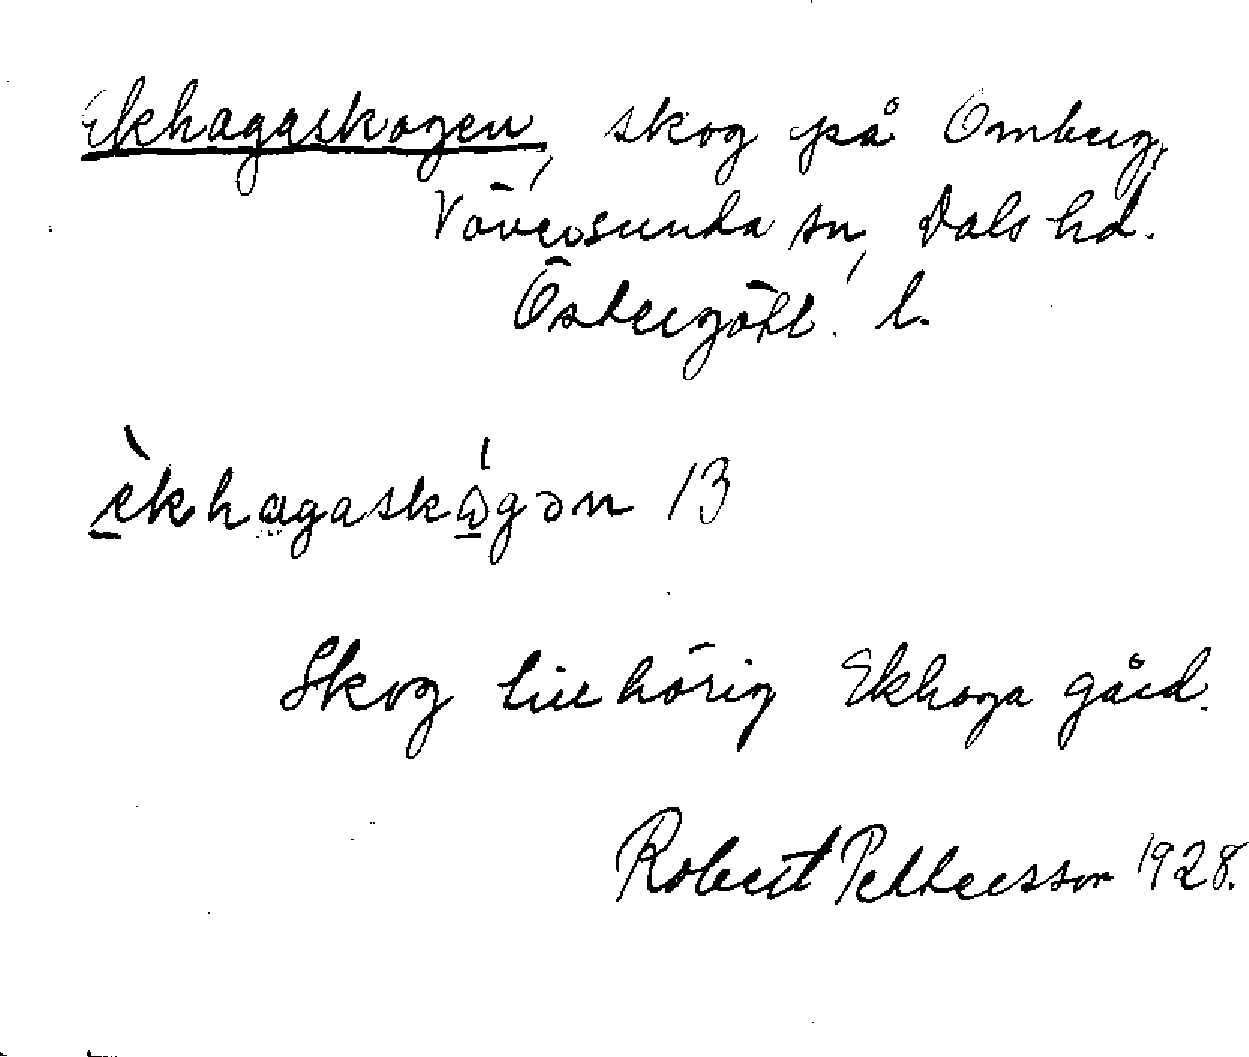 Ekhagaskogen, skog på Omberg,
Väversunda sn, Dals hd.
Östergötl. l.
èkhagaskógən 13
Skog tillhörig Ekhaga gård.
Robert Pettersson 1928.